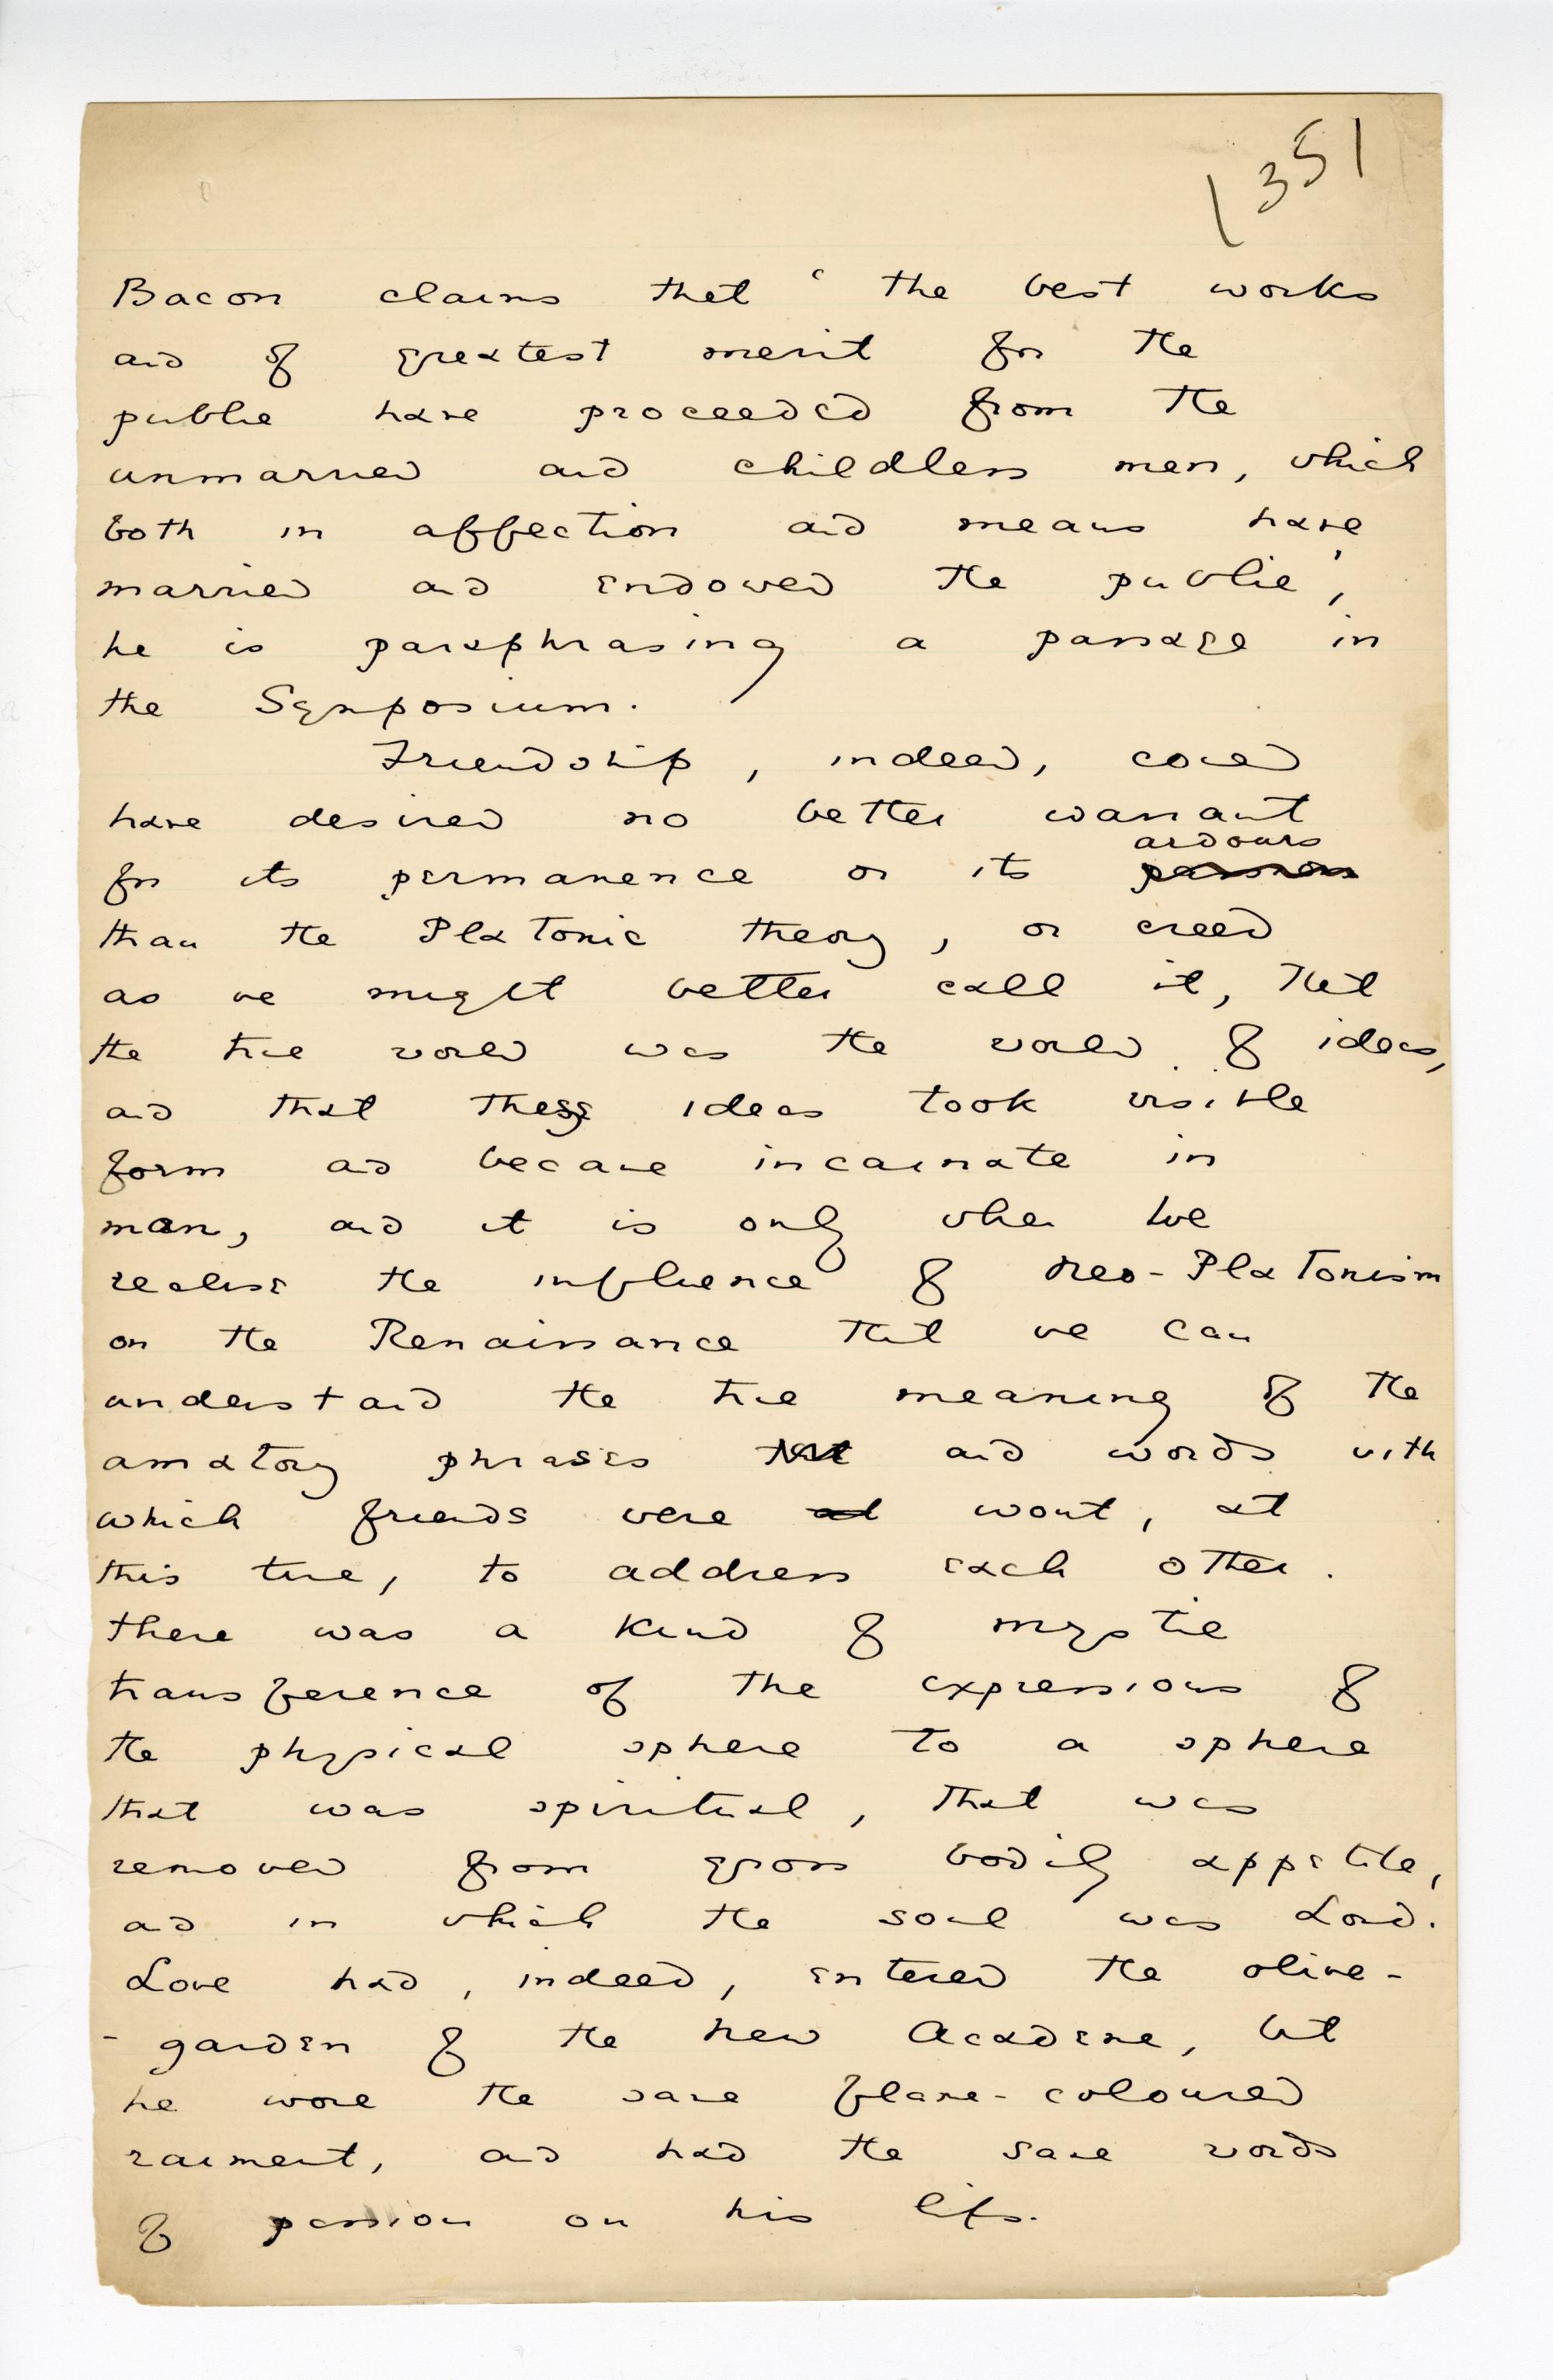 1351
Bacon claims that ‘ the best works
and of greatest merit for the
public have proceeded from the
unmarried and childless men, which
both in affection and means have
married and endowed the public’,
he is paraphrasing a passage in
the Symposium.
Friendship, indeed, could
have desired no better warrant
ardours
for its permanence or its passion
than the Platonic theory, or creed
as we might better call it, that
the true world was the world of ideas,
and that these ideas took visible
form and became incarnate in
man, and it is only when we
realise the influence of neo-Platonism
on the Renaissance that we can
understand the true meaning of the
amatory phrases that and words with
which friends were at wont, at
this time, to address each other.
There was a kind of mystic
transference of the expressions of
the physical sphere to a sphere
that was spiritual, that was
removed from gross bodily appetite,
and in which the soul was Lord.
Love had, indeed, entered the olive-
-garden of the new Academe, but
he wore the same flame-coloured
raiment, and had the same words
of passion on his lips.